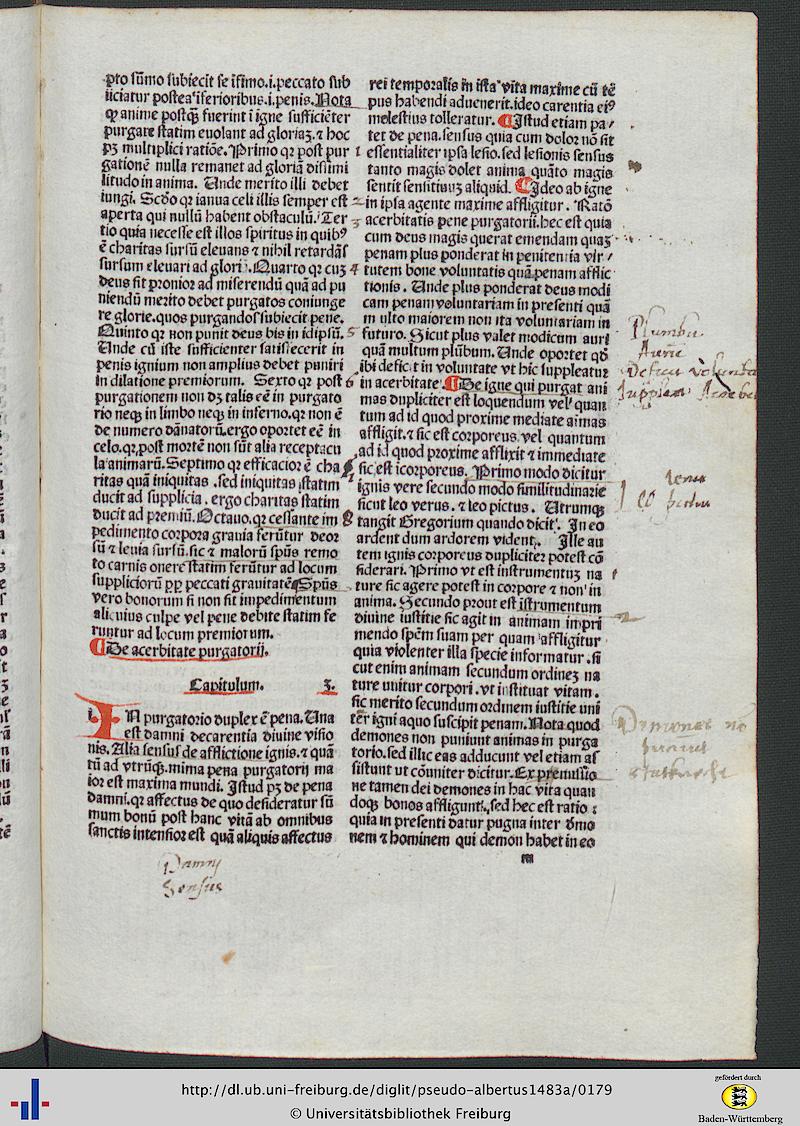 pto sūmo subiecit se īfimo.i.peccato sub
iiciatur postea īferioribus.i.penis. Nota
qꝫ anime postq̄ꝫ fuerint ī igne sufficiēter
purgate statim euolant ad gloriaꝫ.⁊ hoc
pꝫ multiplici ratiōe. Primo qꝛ post pur
gationē nulla remanet ad gloriā dissimi
litudo in anima. Unde merito illi debet
iungi. Scd̄o qꝛ ianua celi illis semper est
aperta qui nullū habent obstaculū. Ter
tio quia necesse est illos spiritus in quibꝰ
ē charitas sursū eleuans ⁊ nihil retardās
sursum eleuari ad glori. Quarto qꝛ cuꝫ
deus sit pronior ad miserendū quā ad pu
niendū merito debet purgatos coniunge
re glorie.quos purgandos subiecit pene.
Quinto qꝛ non punit deus bis in idipsū.
Unde cū iste sufficienter satisfecerit in
penis ignium non amplius debet puniri
in dilatione premiorum. Sexto qꝛ post
purgationem non dꝫ talis eē in purgato
rio neqꝫ in limbo neqꝫ in inferno.qꝛ non ē
de numero dānatorū.ergo oportet eē in
celo.qꝛ post mortē non sūt alia receptacu
la animarū. Septimo qꝛ efficacior ē cha
ritas quā iniquitas .sed iniquitas statim
ducit ad supplicia . ergo charitas statim
ducit ad premiū. Octauo.qꝛ cessante im
pedimento corpora grauia ferūtur deor
sū ⁊ leuia sursū.sic ⁊ malorū spūs remo
to carnis onere statim ferūtur ad locum
suppliciorū ꝓp peccati grauitatē. Spūs
vero bonorum si non sit impedimentum
alicuius culpe vel pene debite statim fe
runtur ad locum premiorum.
De acerbitate purgatorij.
Capitulum. 3.
IN purgatorio duplex ē pena. Una
est damni decarentia diuine visio
nis. Alia sensus de afflictione ignis.⁊ quā
tū ad vtrūqꝫ.mima pena purgatorij ma
ior est maxima mundi. Istud pꝫ de pena
damni.qꝛ affectus de quo desideratur sū
mum bonū post hanc vitā ab omnibus
sanctis intensior est quā aliquis affectus
Damnj
Sensus
rei temporalis in ista vita maxime cū tē
pus habendi aduenerit.ideo carentia eiꝰ
molestius tolleratur. Istud etiam pa⸗
tet de pena.sensus quia cum dolor nō sit
essentialiter ipsa lesio.sed lesionis sensus
tanto magis dolet anima quāto magis
sentit sensitiuuꝫ aliquid. Ideo ab igne
in ipsa agente maxime affligitur . Ratō
acerbitatis pene purgatorij.hec est quia
cum deus magis querat emendam quaꝫ
penam plus ponderat in penitentia vir⸗
tutem bone voluntatis quā penam afflic
tionis . Unde plus ponderat deus modi
cam penam voluntariam in presenti quā
m ulto maiorem non ita voluntariam in
futuro. Sicut plus valet modicum auri
quā multum plūbum. Unde oportet qd̄
ibi deficit in voluntate vt hic suppleatur
in acerbitate. De igne qui purgat ani
mas dupliciter est loquendum vel quan
tum ad id quod proxime mediate aimas
affligit.⁊ sic est corporeus.vel quantum
ad id quod proxime afflixit ⁊ immediate
sic est icorporeus. Primo modo dicitur
ignis vere secundo modo similitudinarie
sicut leo verus. ⁊ leo pictus . Utrumqꝫ
tangit Gregorium quando dicit. In eo
ardent dum ardorem vident. Ille au
tem ignis corporeus dupliciter potest cō
siderari. Primo vt est instrumentuꝫ na
ture sic agere potest in corpore ⁊ non in
anima. Secundo prout est īstrumentum
diuine iustitie sic agit in animam impri
mendo spēm suam per quam affligitur
quia violenter illa specie informatur.si
cut enim animam secundum ordineꝫ na
ture unitur corpori.vt instituat vitam.
sic merito secundum ordinem iustitie uni
tēr igni aquo suscipit penam. Nota quod
demones non puniunt animas in purga
torio.sed illic eas adducunt vel etiam as
sistunt ut cōuniter dicitur. Ex premissio
ne tamen dei demones in hac vita quan
doqꝫ bonos affligunt.sed hec est ratio :
quia in presenti datur pugna inter demo
nem ⁊ hominem qui demon habet in eo
m
Plumbu
http://dl.ub.uni-freiburg.de/diglit/pseudo-albertus1483a/0179
© Universitätsbibliothek Freiburg
gefördert durch
Baden-Württemberg